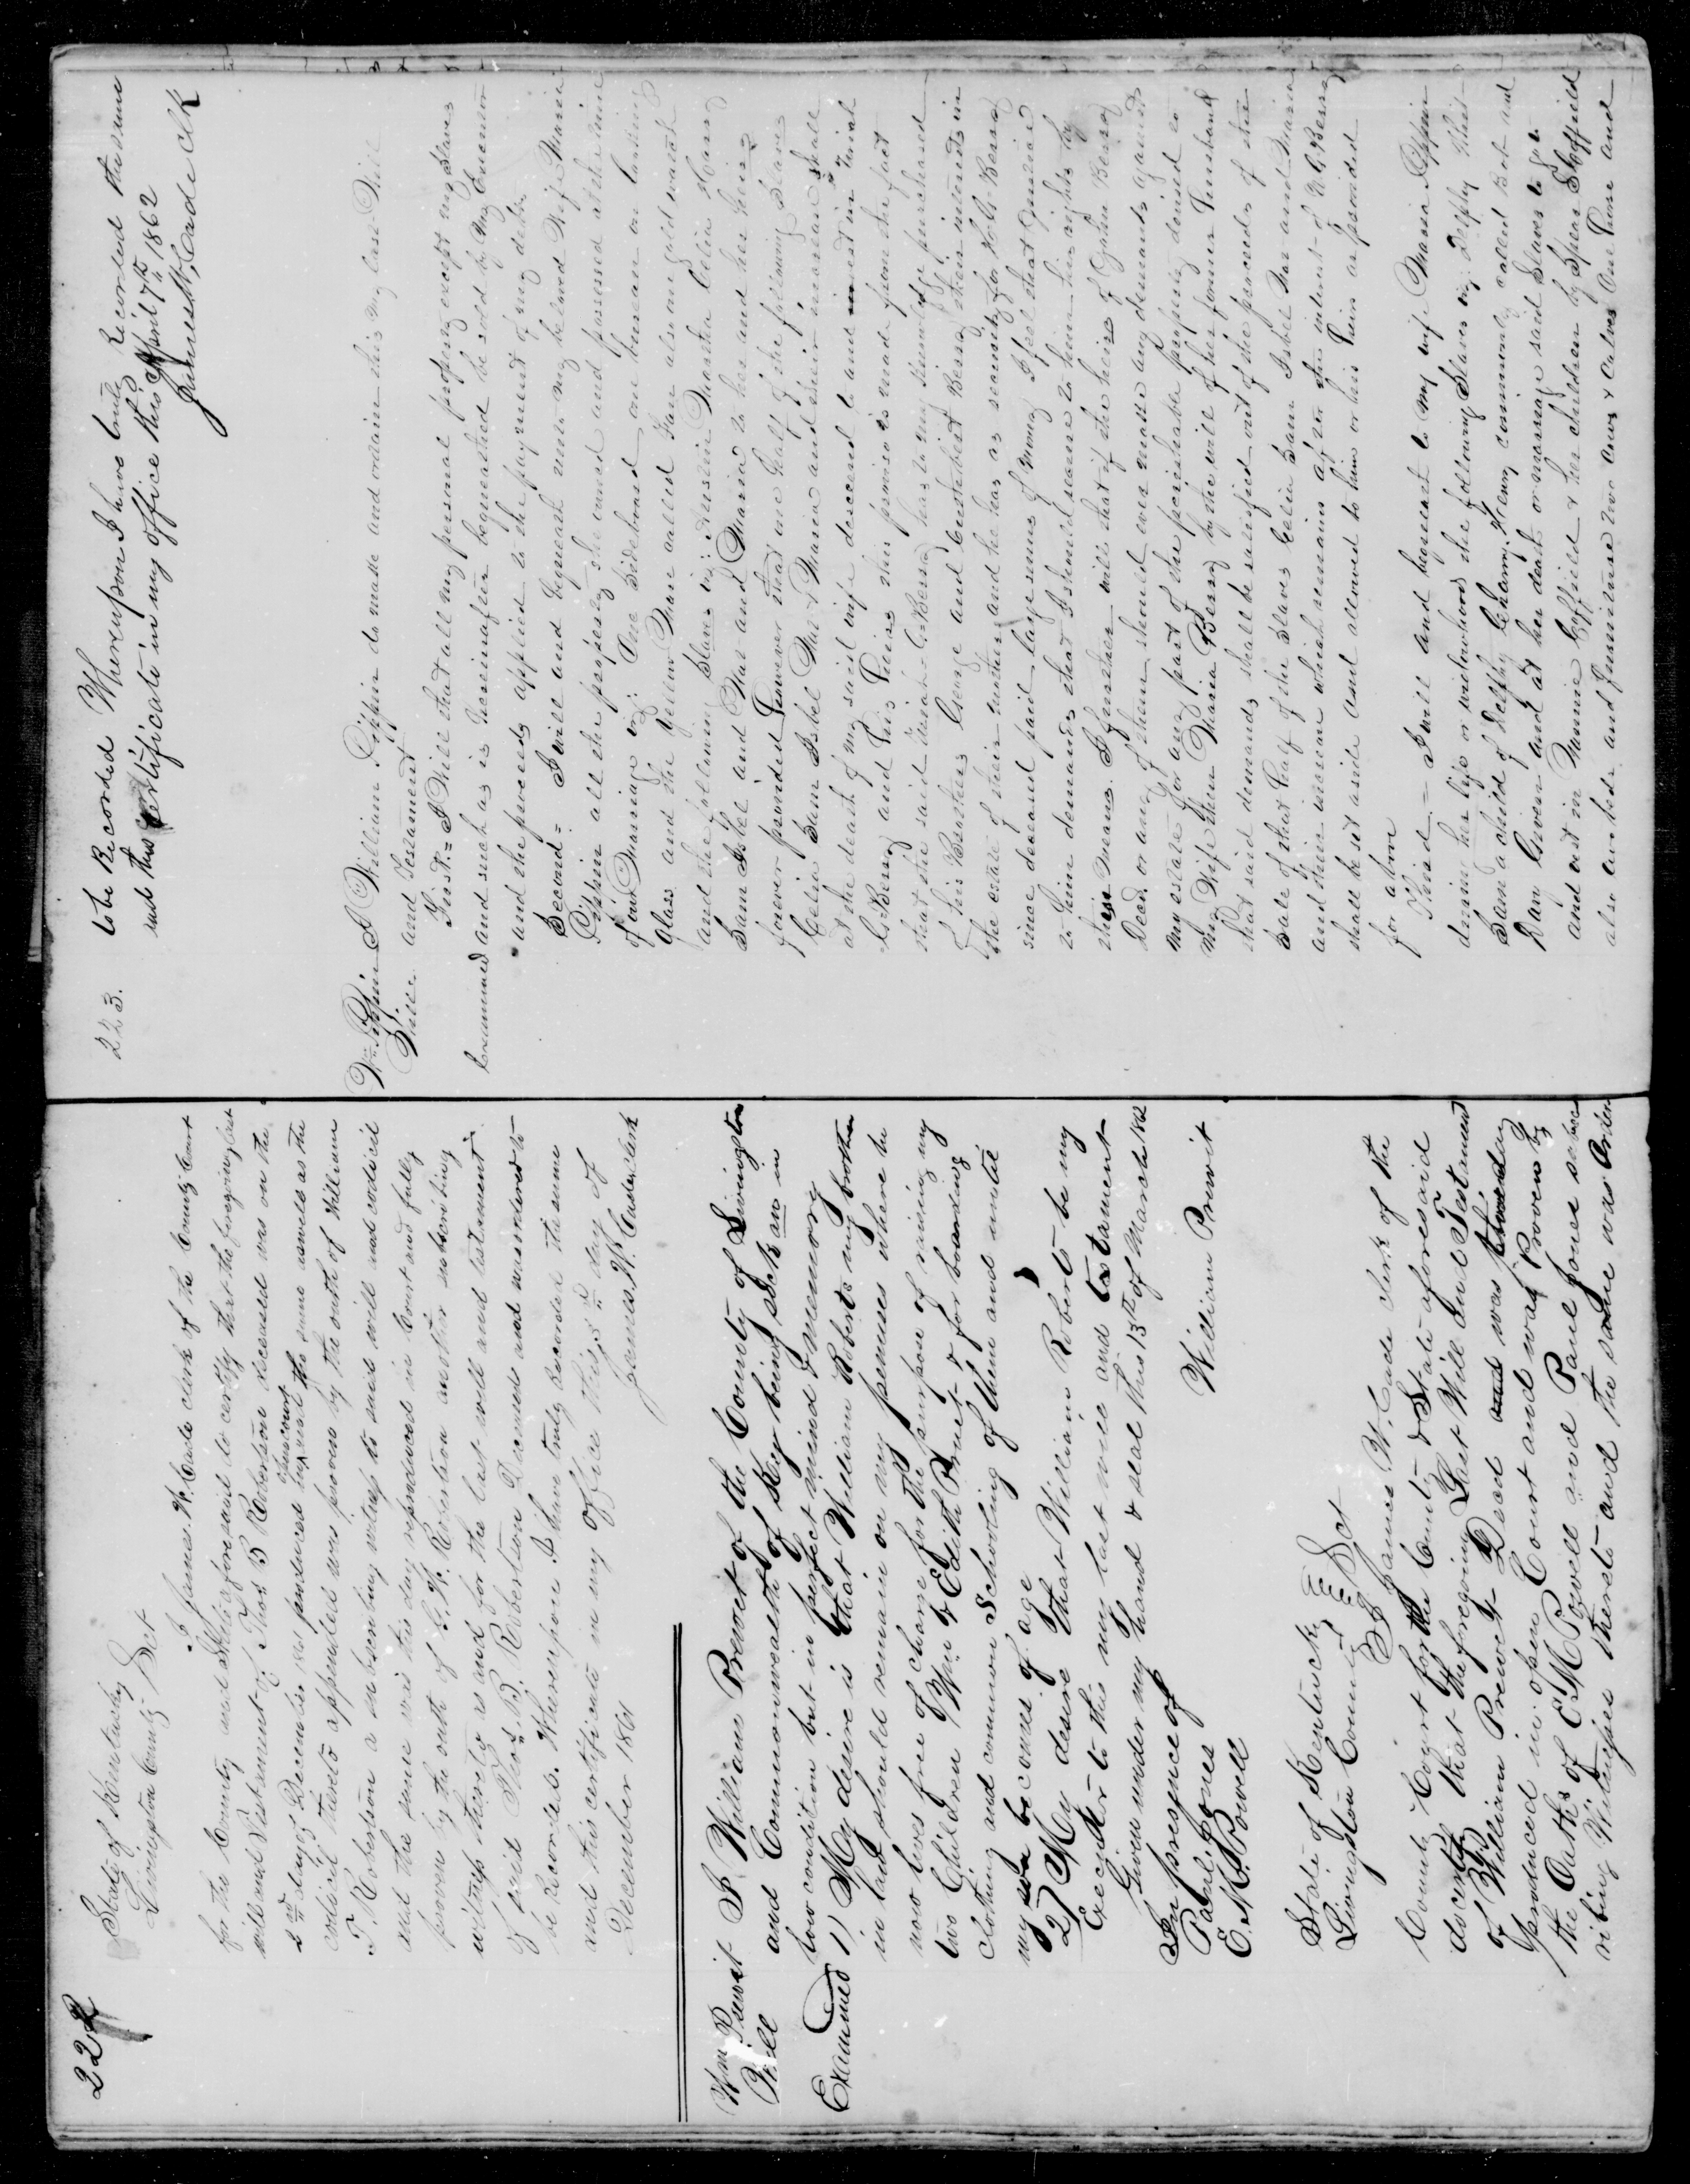 222
State of Kentucky
Livingston County Sct
I James W. Cade clerk of the County Court
for the County and State aforesaid do certify that the foregoing last
will and Testament of Thos B Robertson deceased was on the
2nd day of December 1861 produced in court the same as the
codicil thereto appended was proven by the oath of William
T. Robertson a subscribing witness to said will and codicil
and the same was this day reproduced in Court and fully
proven by the oath of W. Robertson another subscribing
witness thereto as and for the last will and testament
of said Thos B. Robertson Deceased and was ordered to
be recorded. Whereupon I have truly recorded the same
and this certificate in my office this day of
December 1861 James W. Cade, clerk
Wm Prewit
Will
Examined
I William Prewit of the County of Livingston
and Commonwealth of Ky being sick an in
low condition but in perfect mind & Memory
1) My desire is that William Roberts my brother
in law should remain on my premises where he
now lives free of charge for the purpose of raising my
two Children Wm & Edith Pruet & for boarding
Clothing and common Schooling of them and until
my son becomes of age
2) My desire that William Roberts be my
Executor to this my last will and testament
Given under my hand & seal this 13th of March 1862
In presence of William Prewit
Paul Jones
E. M. Powell
State of Kentucky
Livingston County Sct
I James W. Cade clerk of the
County Court for the County & State aforesaid
do certify that the foregoing Last Will and Testament
of William Prewit Decd was this day
produced in open Court and was Proven by
the Oaths of E M Powell and Paul Jones subsc
ribing Witnesses thereto and the same was Orderd
223.
to be Recorded Whereupon I have truly Recorded the same
and this certificate in my office this April 7th 1862
James W. Cade Clk
Wm Pippin
Will
I William Pippin do make and ordain this my last Will
and Testament
Examined
First = I Will that all my personal property except my slaves
and such as is hereinafter bequeathed be sold by my Executor
and the proceeds applied to the payment of my debts
Second = I will and bequeath unto my beloved Wife Maria
Pippin all the property she owned and possessed at the time
of our Marriage viz: One Sideboard one bureau on looking
glass and the yellow Mare called Fan also my gold watch
and the following slaves viz: Celia
Sam Isbel and and Maria to her and her heirs
forever provided however that one half of the following slaves
Celia Sam Isbel & Maria and their increase shall
at the death of my said wife descend to and invest in
Berry and his heirs this proviso is made from the fact
that the said Berry has to my knowledge purchased
of his Brothers George and Berry their interests in
the estate of their mother and he has as security for Berry
since deceased paid large sums of money I feel that
to him demands that I should secure to him his rights by
these means. I further will that if the heirs of John Berry
Decd or any of them should ever make any demands against
my estate for any part of the perishable property devised to
my Wife then Maria Berry by the will of her former husband
that said demands shall be satisfied out of the proceeds of the
sale of that half of the slaves Celia Sam Isbel and Maria
and their increase which remains after the interest of Berry
shall be set aside and allowed to him or his heirs as provided
for above
Third. = I will and bequeath to my wife Maria Pippin
during her life or widowhood the following slaves viz: Delphy
Sam a child of Delphy Cherry, Henry commonly called and
Dany Green and at her death or marriage said slaves to go
and vest in Coffield & her children by Spear Coffield
also one bed and furniture two cows & calves One horse and